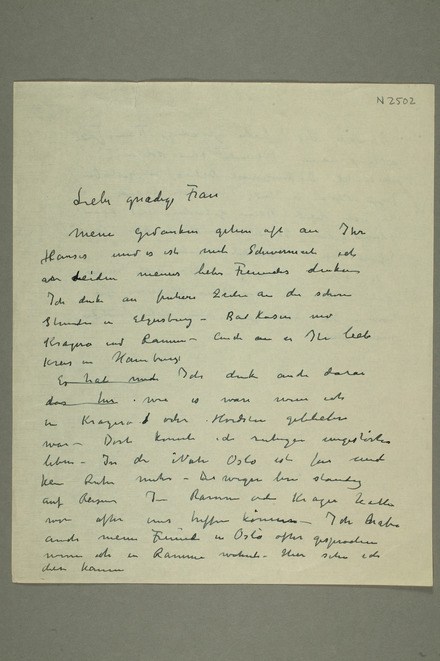 N 2502
Liebe gnädige Frau
Meine Gedanken gehen oft an Ihr
Haus und es ist mit Schwermuth ich
an Leiden meines lieben Freundes denken
Ich denk an frühere Zeiten an die schone
Stunden in Elgersburg – Bad Kösen und
Kragerø und Ramme – auch an Ihr liebe
Kreis in Hamburg
Es hat mich Ich denk auch daran
das wie es ware wenn ich
in Kragerø oder Hvidsten geblieben
war – Dort konnte ich ruhig ungestörter
leben – In der Nähe Oslo ist
kein Ruhe mehr – Deswegen bin standig
auf Reisen In Ramme oder Kragerø hatte
wir öfter uns treffen können – Ich habe
auch meine Freunde in Oslo öfter gesprochen
wenn ich in Ramme wohnte – Hier sehe ich
den kaum